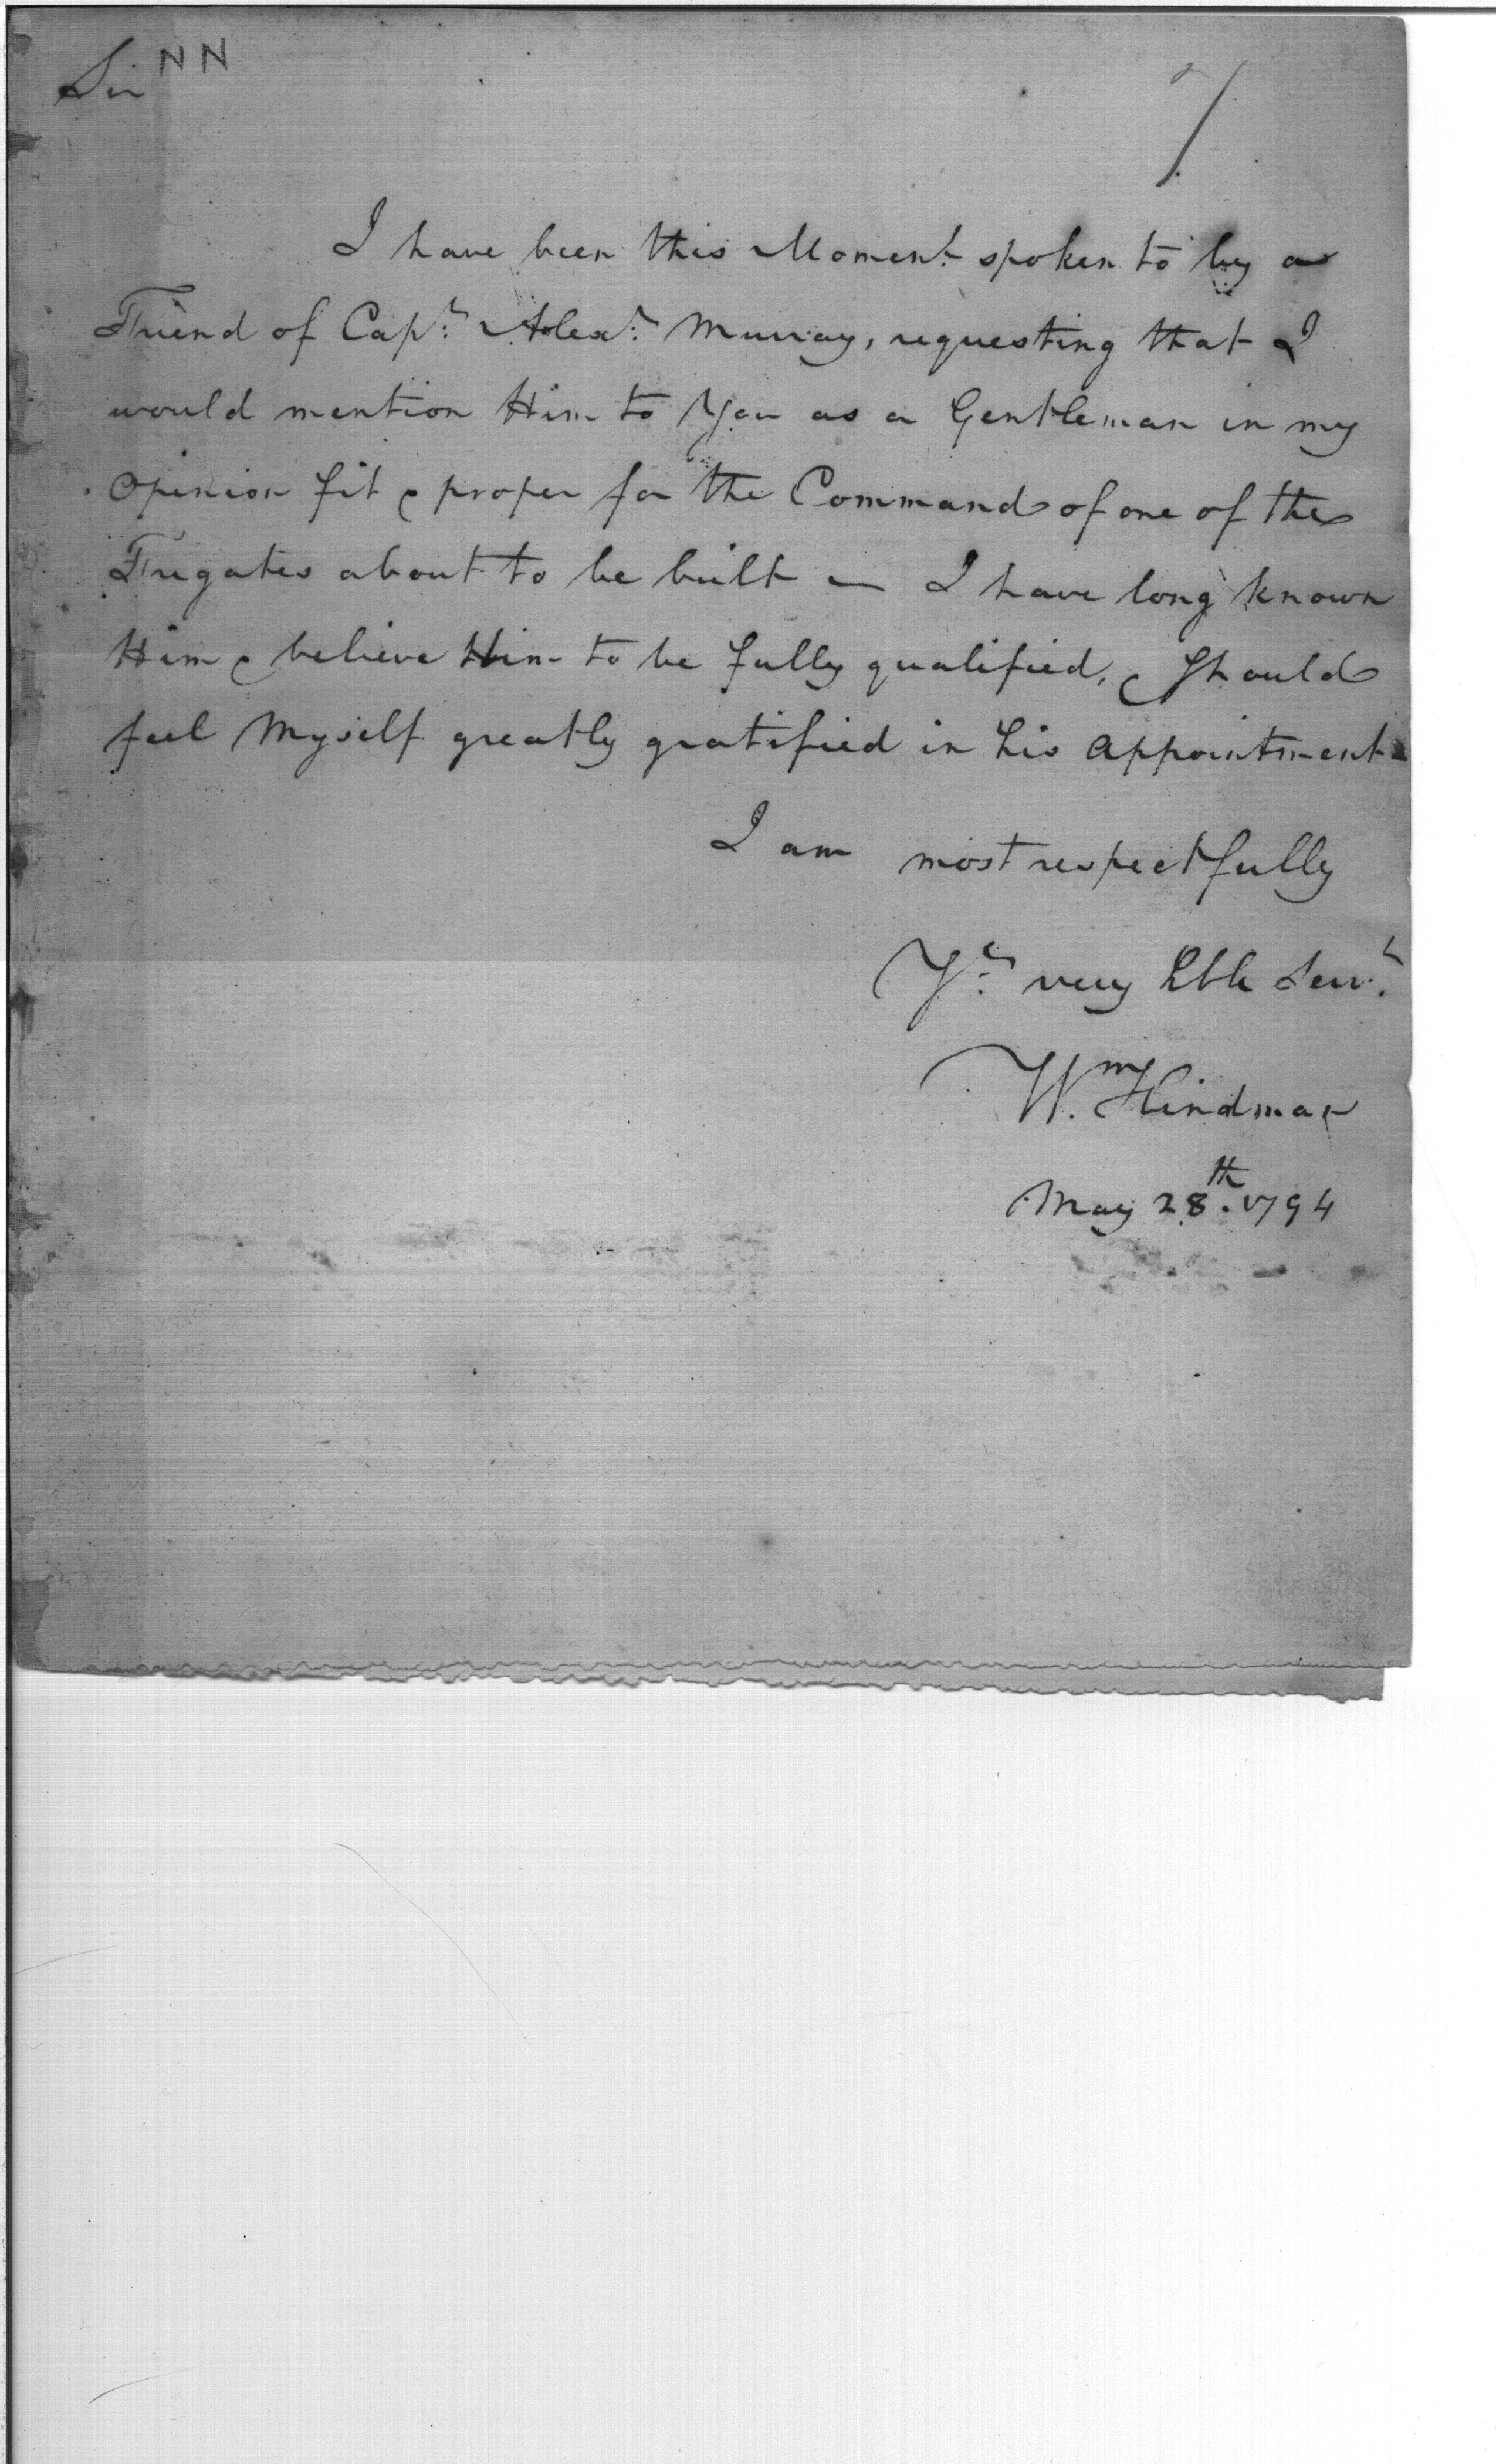 Sir NN
7
I have been this Moment spoken to by a
Friend of Cap.r Alex.r Murray, requesting that I
would mention Him to You as a Gentleman in my
Opinion fit & proper for the Command of one of the
Frigates about to be built — I have long known
Him & believe Him to be fully qualified, & Should
feel Myself greatly gratified in his Appointment
I am most respectfully
Y.r very Hble Serv.t
W.m Hindman
May 28.th 1794